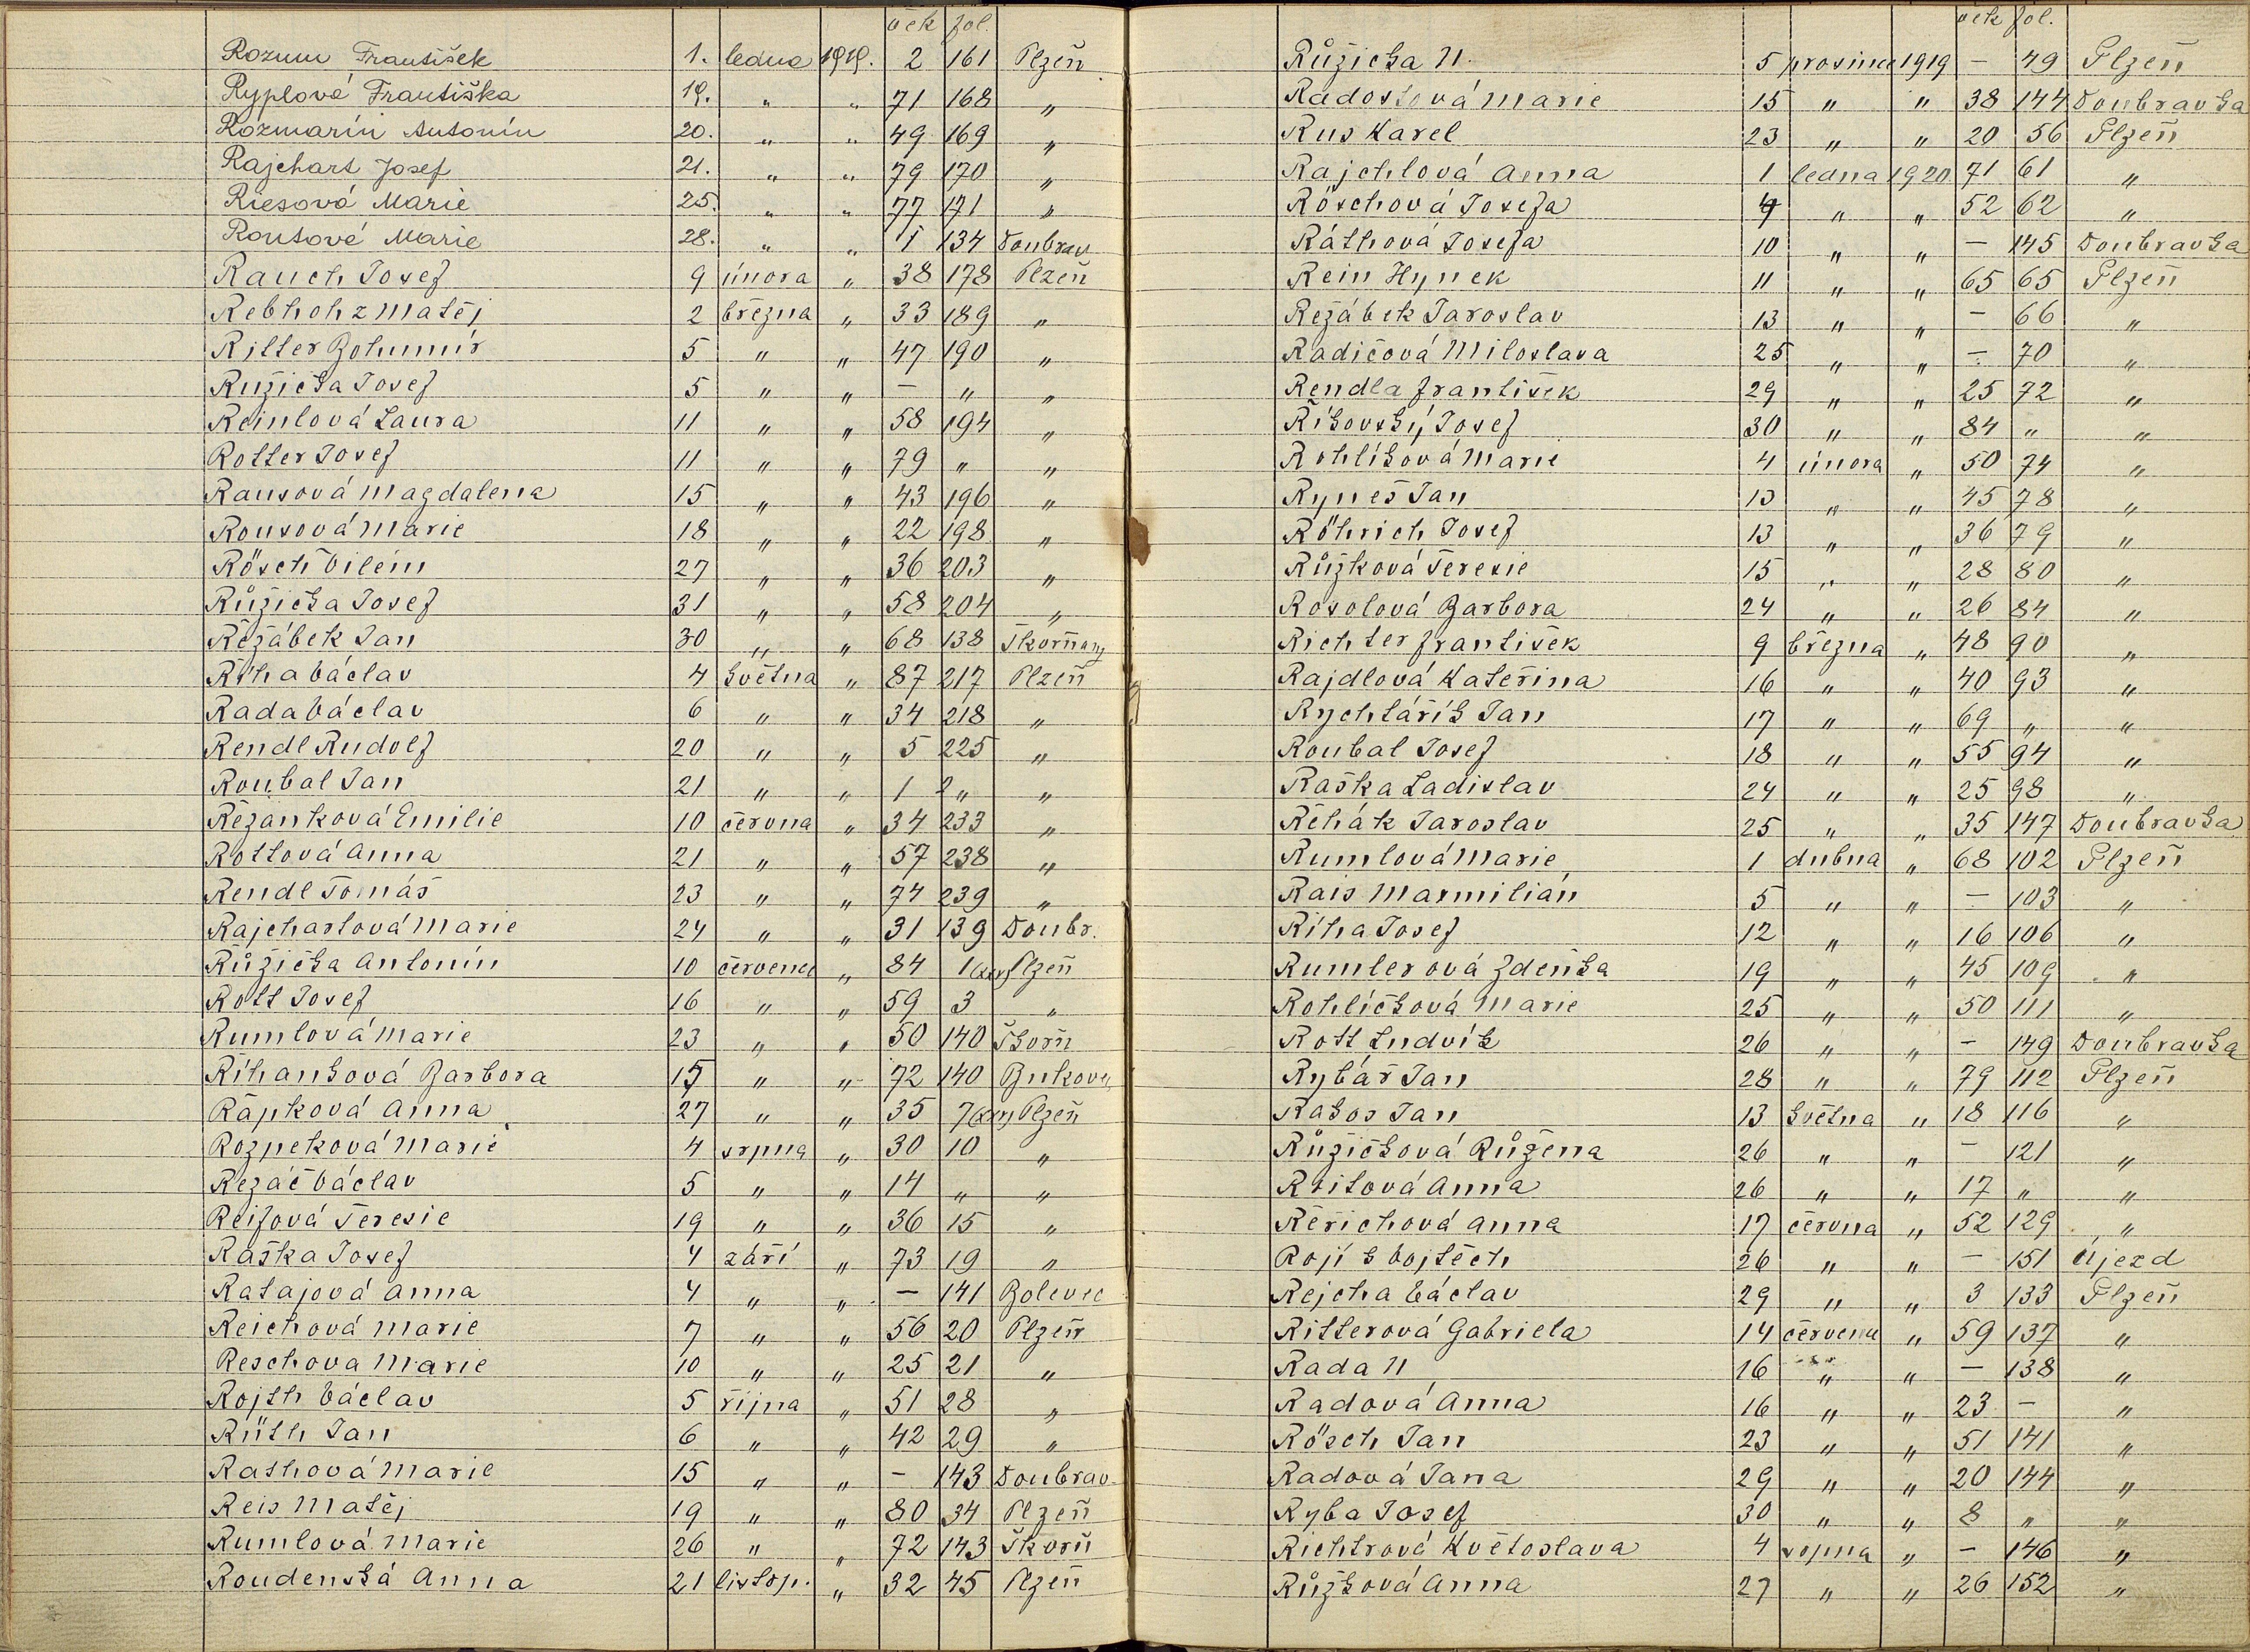 věk fol.
Rozum František 1. ledna 1919. 2 161 Plzeň
Ryplová Františka 19. " " 71 168 "
Rozmarín Antonín 20. " " 49 169 "
Rajchart Josef 21. " " 79 170 "
Riesová Marie 25. " " 77 171 "
Routová Marie 28. " " 1 134 Doubrav
Rauch Josef 9 února " 38 178 Plzeň
Rebhohz Matěj 2 března " 33 189 "
Ritter Bohumír 5 " " 47 190 "
Růžička Josef 5 " " — " "
Reinlová Laura 11 " " 58 194 "
Rotter Josef 11 " " 79 " "
Rausová Magdalena 15 " " 43 196 "
Rousová Marie 18 " " 22 198 "
Rösch Vilém 27 " " 36 203 "
Růžička Josef 31 " " 58 204 "
Řežábek Jan 30 " " 68 138 Škorňany
Říha Václav 4 května " 87 217 Plzeň
Rada Václav 6 " " 34 218 "
Rendl Rudolf 20 " " 5 225 "
Roubal Jan 21 " " 1 2" "
Řežanková Emilie 10 června " 34 233 "
Rottová Anna 21 " " 57 238 "
Rendl Tomáš 23 " " 74 239 "
Rajchartová Marie 24 " " 31 139 Doubr.
Růžička Antonín 10 července " 84 1 Plzeň
Rott Josef 16 " " 59 3 "
Rumlová Marie 23 " " 50 140 Škorň
Říhanková Barbora 15 " " 72 140 Bukovec
Řápková Anna 27 " " 35 7 Plzeň
Rozpeková Marie 4 srpna " 30 10 "
Řezáč Václav 5 " " 14 " "
Reifová Terezie 19 " " 36 15 "
Raška Josef 4 září " 73 19 "
Ratajová Anna 4 " " — 141 Bolevec
Reichová Marie 7 " " 56 20 Plzeň
Reschova Marie 10 " " 25 21 "
Rojth Václav 5 října " 51 28 "
Rüth Jan 6 " " 42 29 "
Rathová Marie 15 " " — 143 Doubrav
Reis Matěj 19 " " 80 34 Plzeň
Rumlová Marie 26 " " 72 143 Škorň
Roudenská Anna 21 listop. " 32 45 Plzeň
věk fol.
Růžička N. 5 prosince 1919 — 49 Plzeň
Radostová Marie 15 " " 38 144 Doubravka
Rus Karel 23 " " 20 56 Plzeň
Rajchlová Anna 1 ledna 1920 71 61 "
Röschová Josefa 4 " " 52 62 "
Ráthová Josefa 10 " " — 145 Doubravka
Rein Hynek 11 " " 65 65 Plzeň
Řežábek Jaroslav 13 " " — 66 "
Radičová Miloslava 25 " " — 70 "
Rendla František 29 " " 25 72 "
Říkovský Josef 30 " " 84 " "
Rohlíková Marie 4 února " 50 74 "
Ryneš Jan 13 " " 45 78 "
Röhrich Josef 13 " " 36 79 "
Růžková Terezie 15 " " 28 80 "
Rosolová Barbora 24 " " 26 84 "
Richter František 9 března " 48 90 "
Rajdlová Kateřina 16 " " 40 93 "
Rychtářík Jan 17 " " 69 " "
Roubal Josef 18 " " 55 94 "
Raška Ladislav 24 " " 25 98 "
Řehák Jaroslav 25 " " 35 147 Doubravka
Rumlová Marie 1 dubna " 68 102 Plzeň
Rais Maxmilián 5 " " — 103 "
Říha Josef 12 " " 16 106 "
Rumlerová Zdeňka 19 " " 45 109 "
Rohlíčková Marie 25 " " 50 111 "
Rott Ludvík 26 " " — 149 Doubravka
Rybář Jan 28 " " 79 112 Plzeň
Rakos Jan 13 května " 18 116 "
Růžičková Růžena 26 " " — 121 "
Anna 26 " " 17 " "
Řeřichová Anna 17 června " 52 129 "
Rojík Vojtěch 26 " " — 151 Újezd
Rejcha Václav 29 " " 3 133 Plzeň
Ritterová Gabriela 14 července " 59 137 "
Rada N 16 " " — 138 "
Radová Anna 16 " " 23 — "
Rösch Jan 23 " " 51 141 "
Radová Jana 29 " " 20 144 "
Ryba Josef 30 " " 8 " "
Richtrová Květoslava 4 srpna " — 146 "
Růžková Anna 27 " " 26 152 "